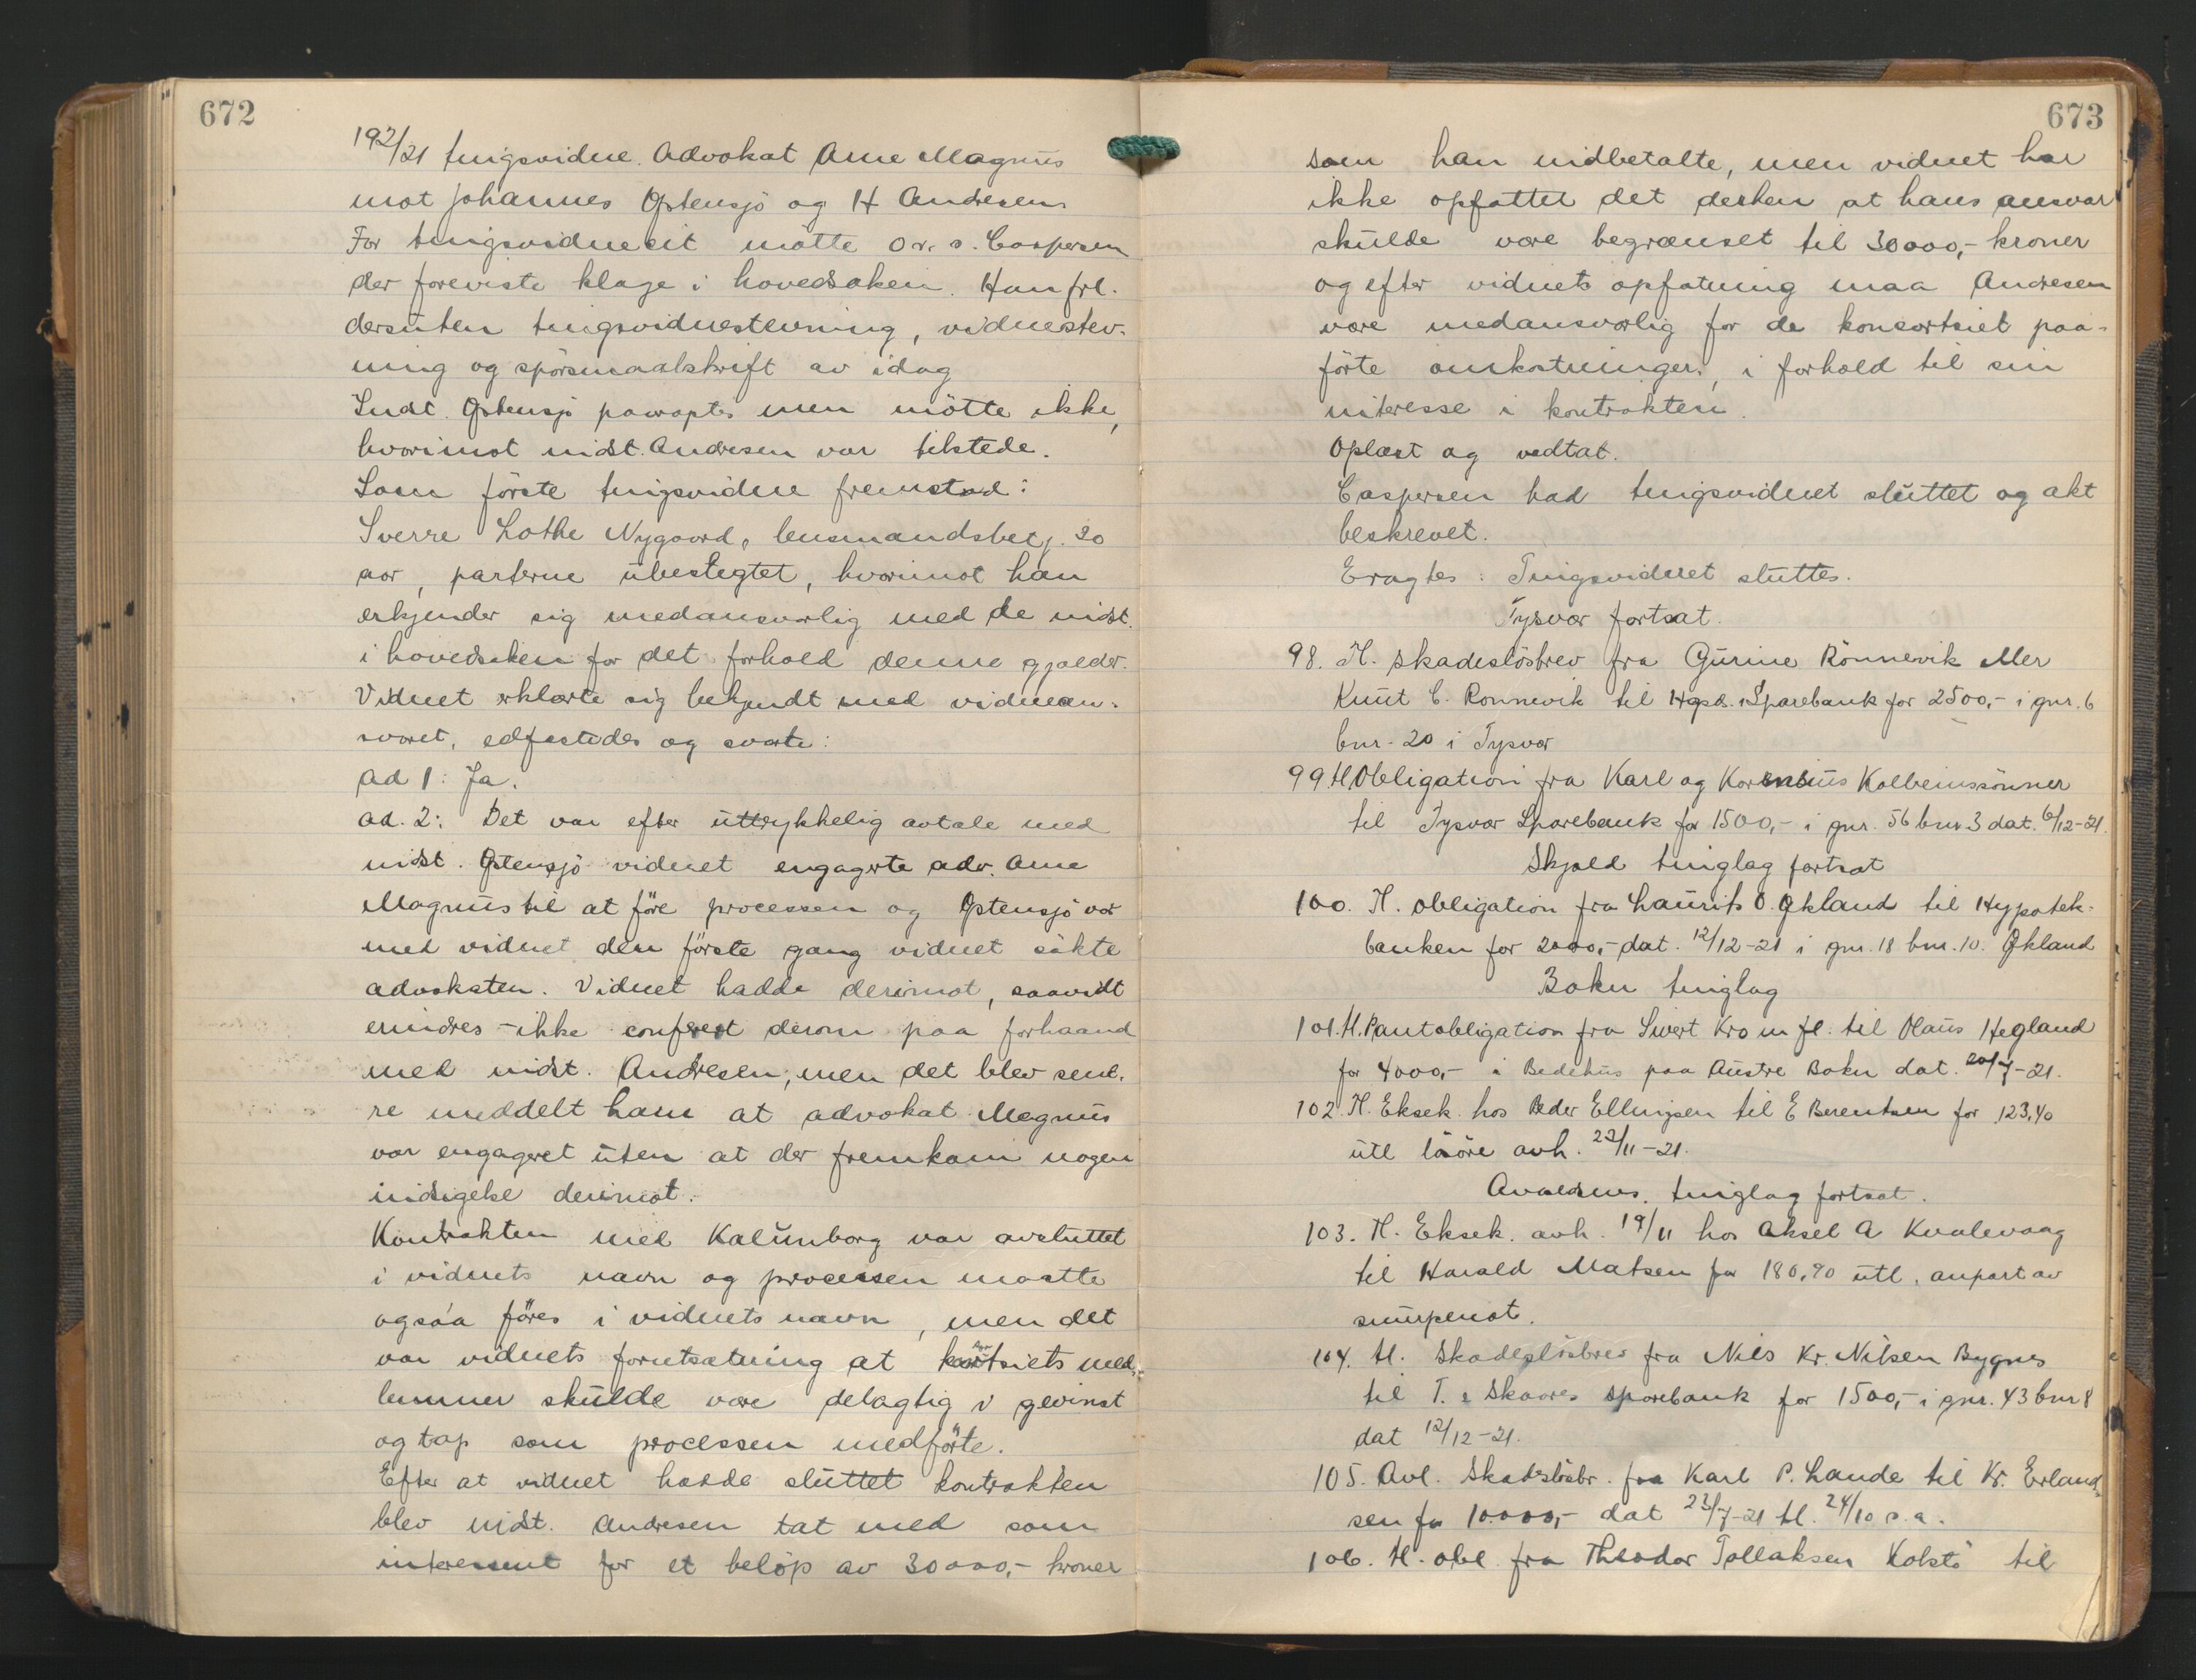 672
192/21 tingsvidne. Advokat Arne Magnus
mot Johannes Østensjö og H Andresen
For tingsvidnesit mötte o.r.s. Caspersen
der foreviste klage i hovedsaken. Han frl.
dersuten tingsvidnestevning, vidnestev-
ning og spörsmaalskrift av idag
Indst. Østensjö paaroptes men mötte ikke,
hvorimot indst. Andresen var tilstede.
Som förste tingsvidne fremstod:
Sverre Lothe Nygaard, lensmandsbetj. 30
aar, parterne ubeslegtet, hvorimot han
erkjender sig medansvarlig med de indst.
i hovedsaken for det forhold denne gjælder.
Vidnet erklærte sig bekjendt med vidnean-
svaret, edfestedes og svarte:
ad 1: Ja.
ad. 2: Det var efter uttrykkelig avtale med
indst. Østensjö vidnet engagerte adv. Arne
Magnus til at före processen og Østensjö var
med vidnet den förste gang vidnet sökte
advokaten. Vidnet hadde derimot, saavidt
erindres - ikke conferert derom paa forhaand
med indst. Andresen, men det blev sene-
re meddelt ham at advokat Magnus
var engageret uten at der fremkom nogen
indsigelse derimot.
Kontrakten med Kalunborg var avsluttet
i vidnets navn og processen maatte
ogsaa föres i vidnets navn, men det
var vidnets forutsætning at konsortsiets med-
lemmer skulde være delagtig i gevinst
og tap som processen medförte.
Efter at vidnet hadde sluttet kontrakten
blev indst. Andresen tat med som
interessent for et belöp av 30000,- kroner
673
som han indbetalte, men vidnet har
ikke opfattet det derhen at hans ansvar
skulde være begrænset til 30000,- kroner
og efter vidnets opfatning maa Andresen
være medansvarlig for de konsortsiet paa-
förte omkostninger, i forhold til sin
interesse i kontrakten.
Oplæst og vedtat.
Caspersen bad tingsvidnet sluttet og akt
beskrevet.
Eragtes: Tingsvidnet sluttes.
Tysvær fortsat.
98. H. skadeslösbrev fra Gurine Rönnevik eller
Knut C. Rönnevik til Hgsds. Sparebank for 2500,- i gnr. 6
bnr. 20 i Tysvær
99 H. Obligation fra Karl og Kornelius Kolbeinssönner
til Tysvær Sparebank for 1500,- i gnr. 56 bnr 3 dat. 6/12-21.
Skjold tinglag fortsat
100. H. obligation fra Laurits O. Økland til Hypotek-
banken for 2000,- dat. 12/12-21 i gnr. 18 bnr. 10. Økland
Bokn tinglag
101. H. Pantobligation fra Sivert Kro m fl. til Olaus Hegland
for 4000,- i Bedehus paa Austre Bokn dat. 20/7-21.
102. H. Eksek. hos Peder Ellingsen til E Berentsen for 123,40
utl lösöre avh. 23/11-21.
Avaldsnes. tinglag fortsat.
103. H. Eksek. avh. 19/11 hos Aksel A Kvalevaag
til Harald Matsen for 180,90 utl. anpart av
snurpenot.
104. H. Skadeslösbrev fra Nils Kr. Nilsen Bygnes
til T. & Skaares sparebank for 1500,- i gnr. 43 bnr 8
dat 12/12-21.
105. Avl. Skadeslösbr. fra Karl P. Lande til Kr. Erland-
sen for 10.000,- dat 23/7-21 tl. 24/10 s.a.
106. H. obl. fra Theodor Tollaksen Kolstö til